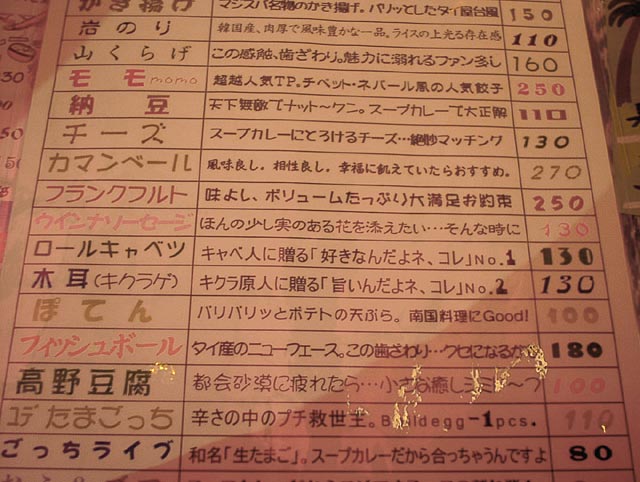 かき揚げ マジスパ名物のかき揚げ。パリッとしたタイ屋台風 150
岩のり 韓国産、肉厚で風味豊かな一品。ライスの上光る存在感 110
山くらげ この感触、歯ざわり。魅力に溺れるファン多し 160
モモ momo 超越人気TP。チベット・ネパール風の人気餃子 250
納豆 天下無敵でナット〜クニ。スープカレーで大正解 110
チーズ スープカレーにとろけるチーズ…絶妙マッチング 130
カマンベール 風味良し。相性良し。幸福に飢えていたらおすすめ。 270
フランクフルト 味よし、ボリュームたっぷり大満足お約束 250
ウインナソーセージ ほんの少し実のある花を添えたい…そんな時に 130
ロールキャベツ キャベ人に贈る「好きなんだよネ、コレ」No.1 130
木耳(キクラゲ) キクラ原人に贈る「旨いんだよネ、コレ」No.2 130
ぽてん バリバリッとポテトの天ぷら。南国料理にGood! 100
フィッシュボール タイ産のニューフェース。この歯ざわり…クセになるかも 180
高野豆腐 都会砂漠に疲れたら…小さな癒し 100
コデたまごっち 辛さの中のプチ救世主。Boildegg-1pcs. 110
ごっちライブ 和名「生たまご」。スープカレーだから合っちゃうんですよ 80